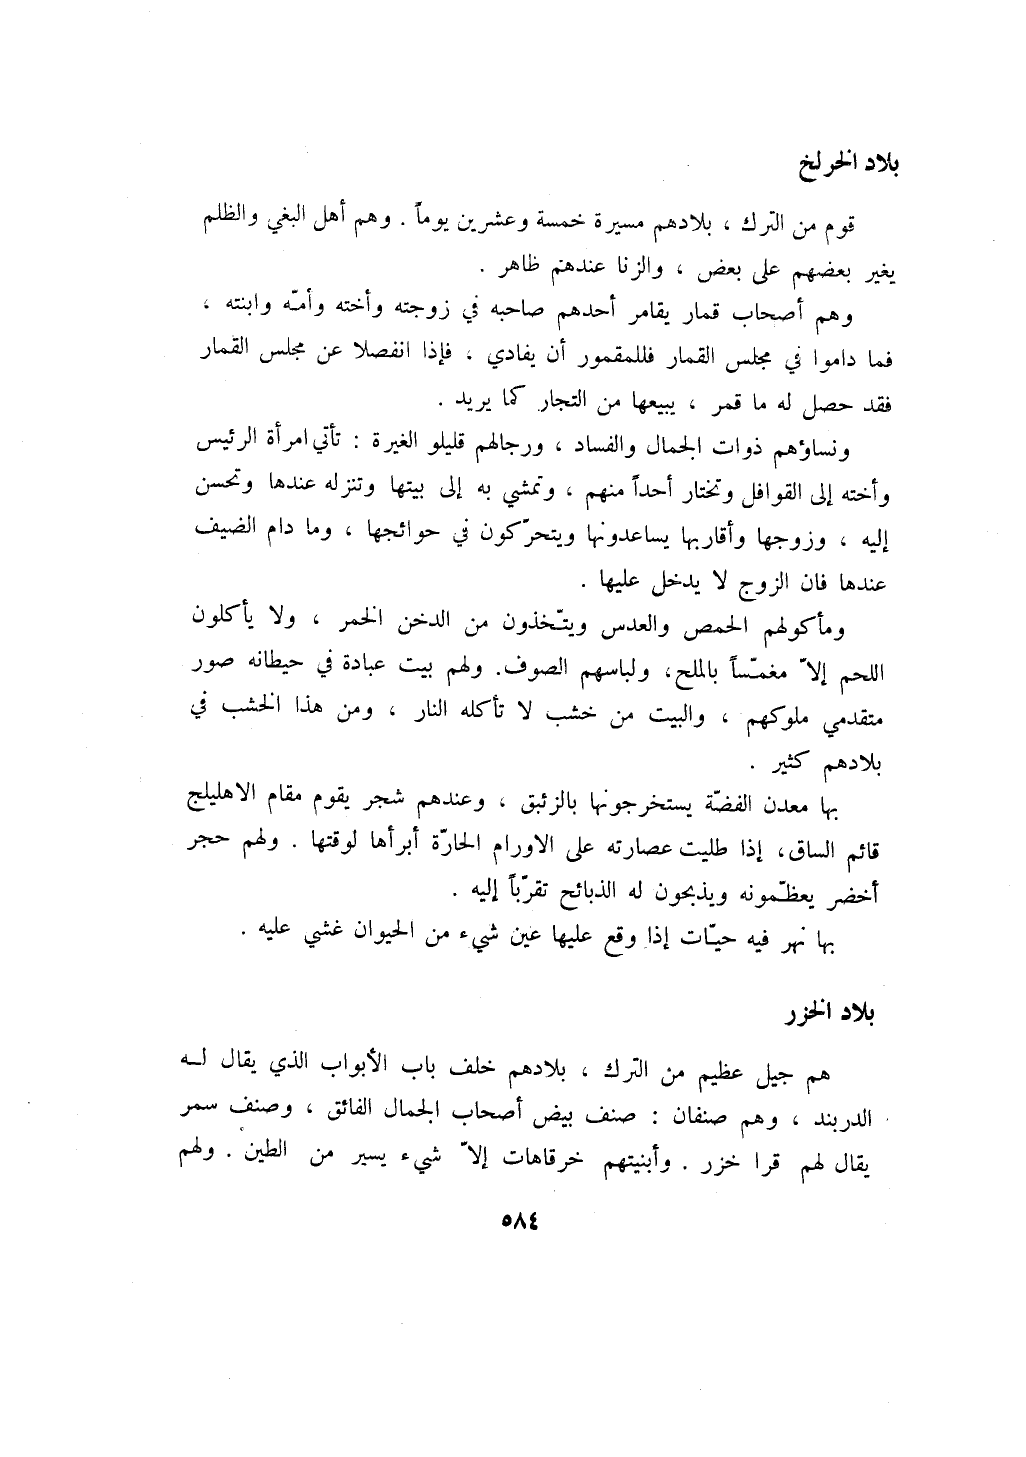 بلاد الخرلخ
قوم من الترك ، بلادهم مسيرة خمسة وعشرين يوماً . وهم أهل البغي والظلم
يغير بعضهم على بعض ، والزنا عندهم ظاهر .
وهم أصحاب قمار يقامر أحدهم صاحبه في زوجته وأخته وأمّه وابنته ،
فما داموا في مجلس القمار فللمقمور أن يفادي ، فإذا انفصلا عن مجلس القمار
فقد حصل له ما قمر ، يبيعها من التجار كما يريد .
ونساؤهم ذوات الجمال والفساد ، ورجالهم قليلو الغيرة : تأتي امرأة الرئيس
وأخته إلى القوافل وتختار أحداً منهم ، وتمشي به إلى بيتها وتنزله عندها وتحسن
إليه ، وزوجها وأقاربها يساعدونها ويتحرّكون في حوائجها ، وما دام الضيف
عندها فان الزوج لا يدخل عليها .
ومأكولهم الحمص والعدس ويتّخذون من الدخن الخمر ، ولا يأكلون
اللحم إلاّ مغمّساً بالملح، ولباسهم الصوف. ولهم بيت عبادة في حيطانه صور
متقدمي ملوكهم ، والبيت من خشب لا تأكله النار ، ومن هذا الخشب في
بلادهم كثير .
بها معدن الفضّة يستخرجونها بالزئبق ، وعندهم شجر يقوم مقام الاهليلج
قائم الساق، إذا طليت عصارته على الاورام الحارّة أبرأها لوقتها . ولهم حجر
أخضر يعظّمونه ويذبحون له الذبائح تقرّباً إليه .
بها نهر فيه حيّات إذا وقع عليها عين شيء من الحيوان غشي عليه .
بلاد الخزر
هم جيل عظيم من الترك ، بلادهم خلف باب الأبواب الذي يقال لـه
الدربند ، وهم صنفان : صنف بيض أصحاب الجمال الفائق ، وصنف سمر
يقال لهم قرا خزر . وأبنيتهم خرقاهات إلاّ شيء يسير من الطين . ولهم
٥٨٤